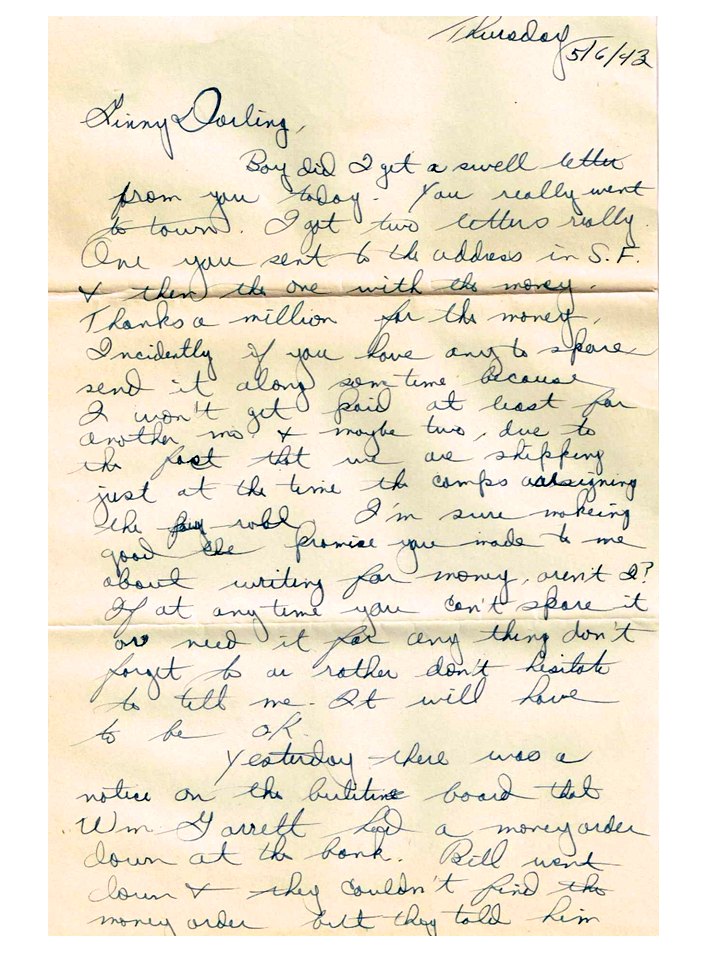 Thursday
5/6/43
Ginny Darling,
Boy did I get a swell letter
from you today. You really went
to town. I got two letters really.
One you sent to the address in S.F.
& then the one with the money.
Thanks a million for the money.
Incidently if you have any to spare
send it along some time because
I won't get paid at least for
another mo. & maybe two, due to
the fact that we are shipping
just at the time the camps
the pay roll I'm sure makeing
good the promise you made to me
about writing for money, aren't I?
If at any time you can't spare it
or need it for any thing don't
forget to or rather don't hisitate
to tell me. It will have
to be OK.
Yesterday there was a
notice on the board that
Wm Garrett had a money order
down at the bank. Bill went
down & they couldn't find the
money order but they told him